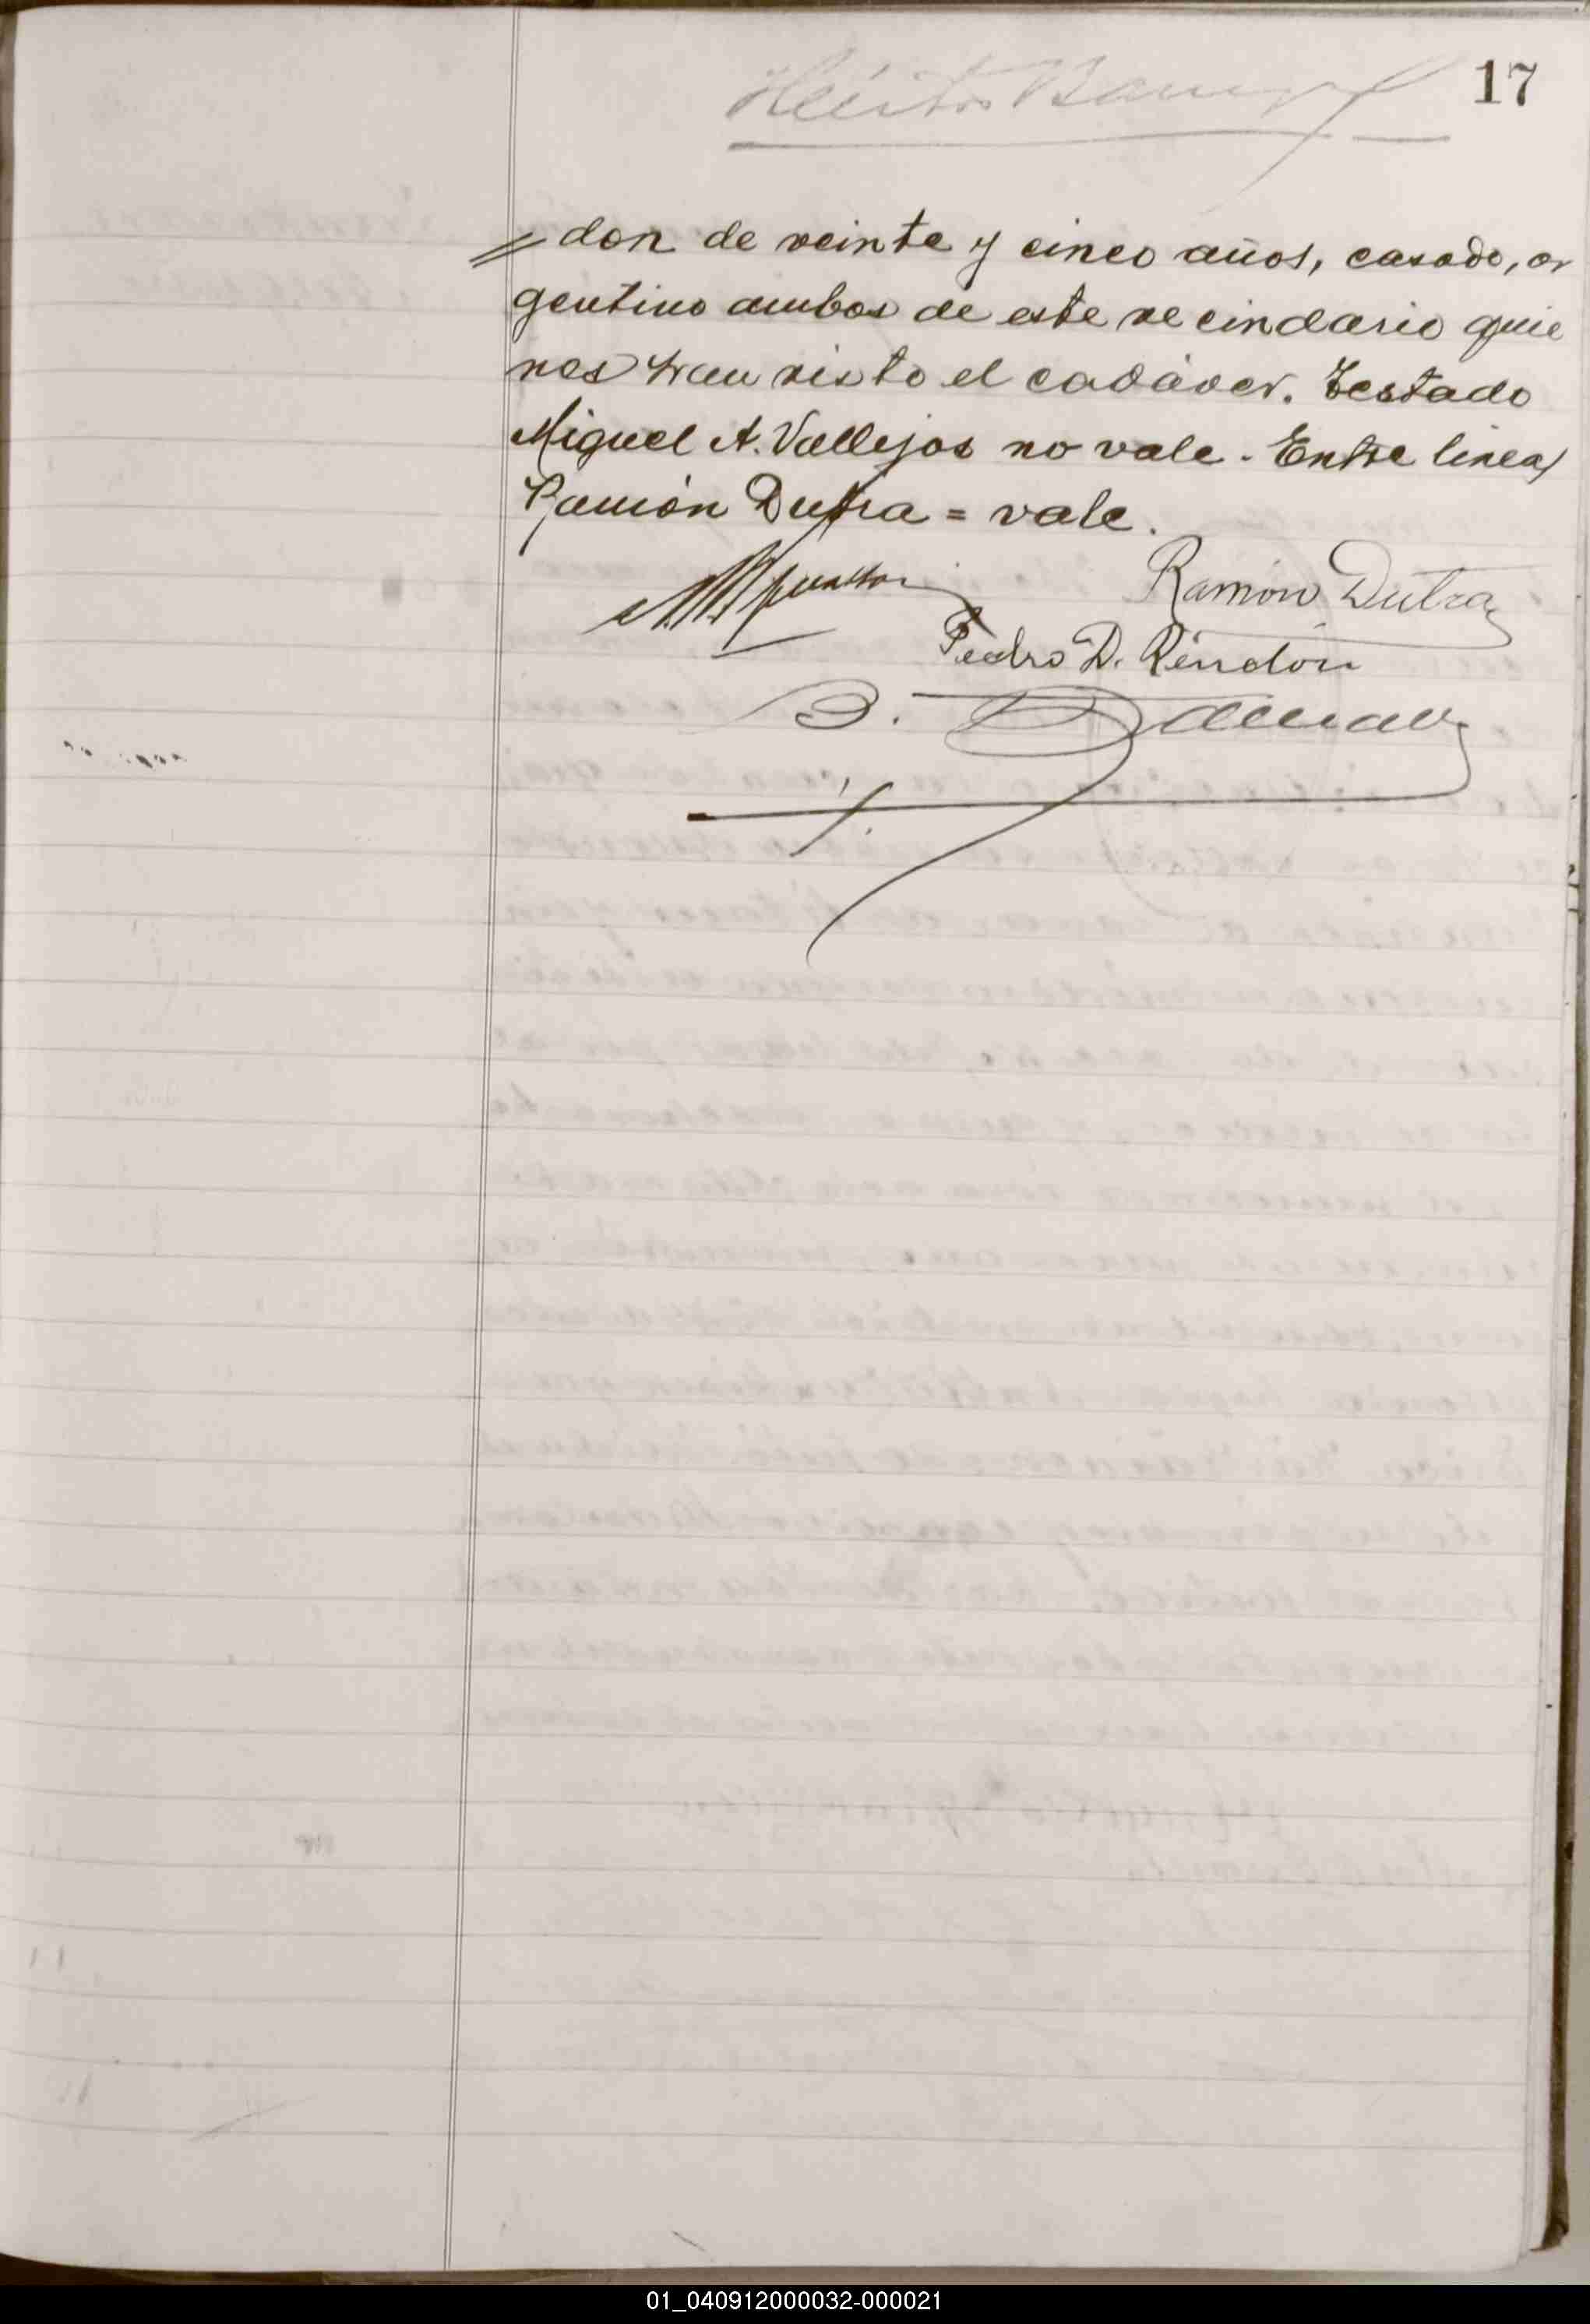 17
Héctor
don de veinte y cinco años, casado, ar
gentino ambos de este vecindario quie
nes han visto el cadáver. Testado
Miguel A. Vallejos no vale. Entre lineas
Ramón Dutra = vale.
Ramón Dutra
Pedro D. Rendón
01_040912000032-000021